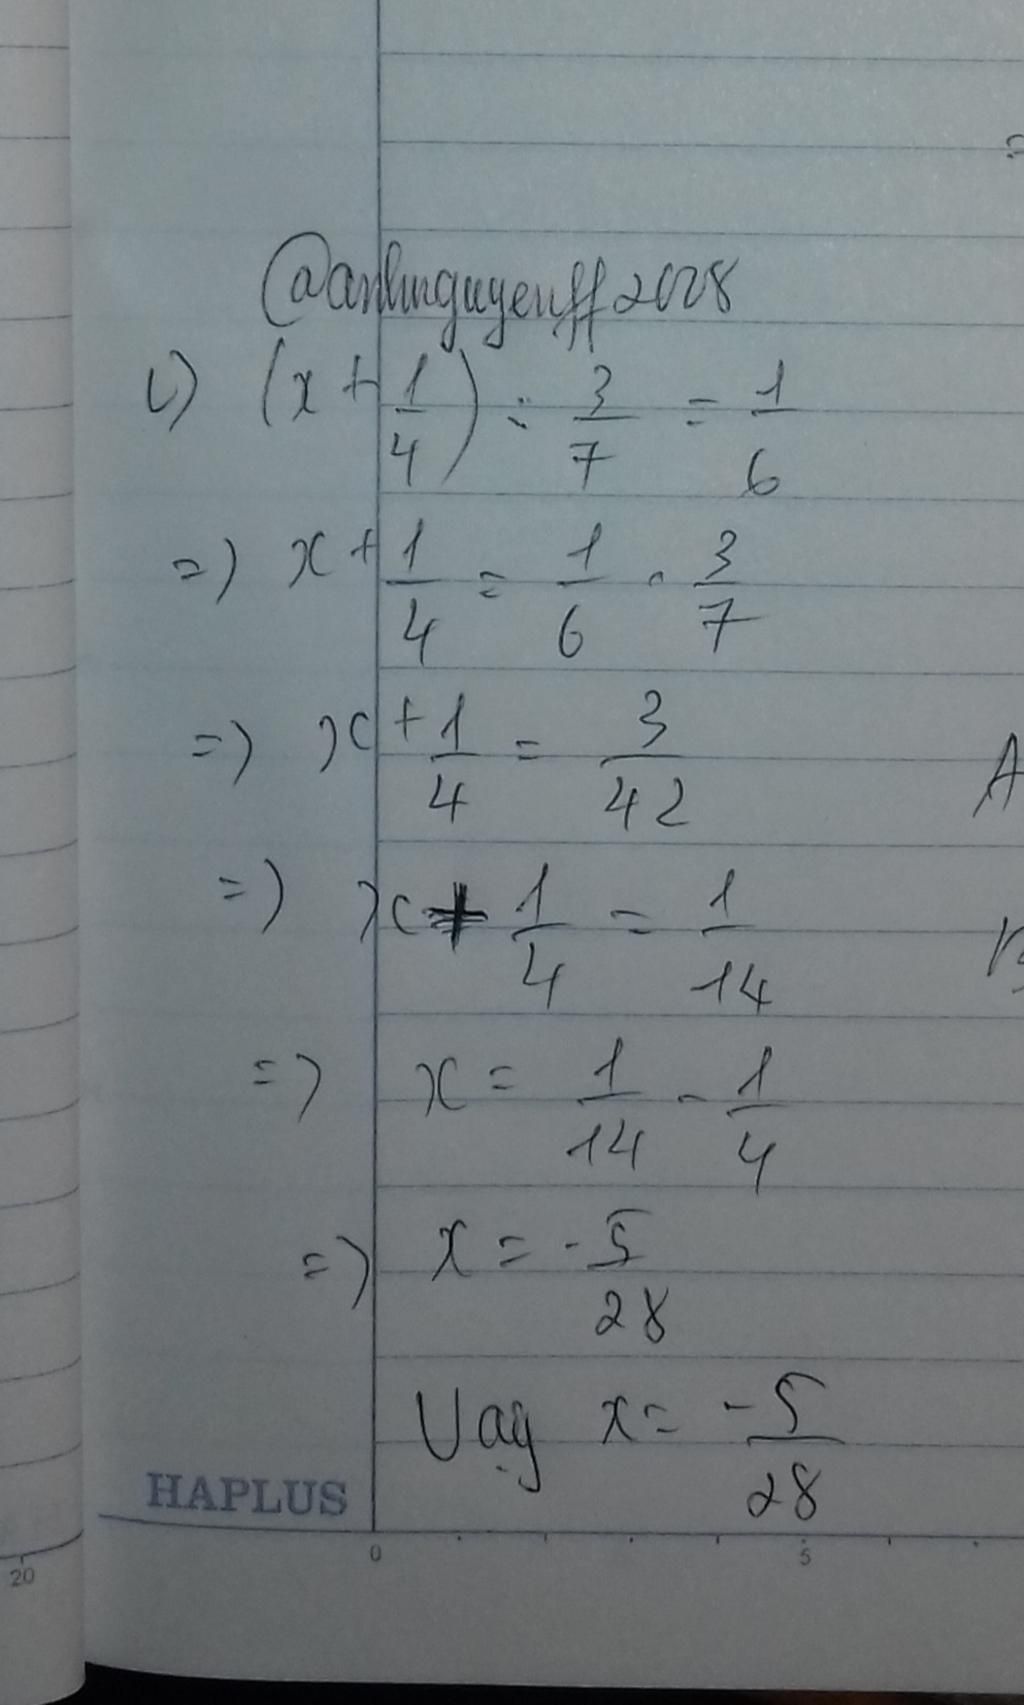 @anhnguyenff2028
c) (x + 1/4) : 3/7 = 1/6
=) x + 1/4 = 1/6 . 3/7
=) x + 1/4 = 3/42
=) x + 1/4 = 1/14
=) x = 1/14 - 1/4
=) x = -5/28
Vậy x = -5/28
HAPLUS
0 5
20
A